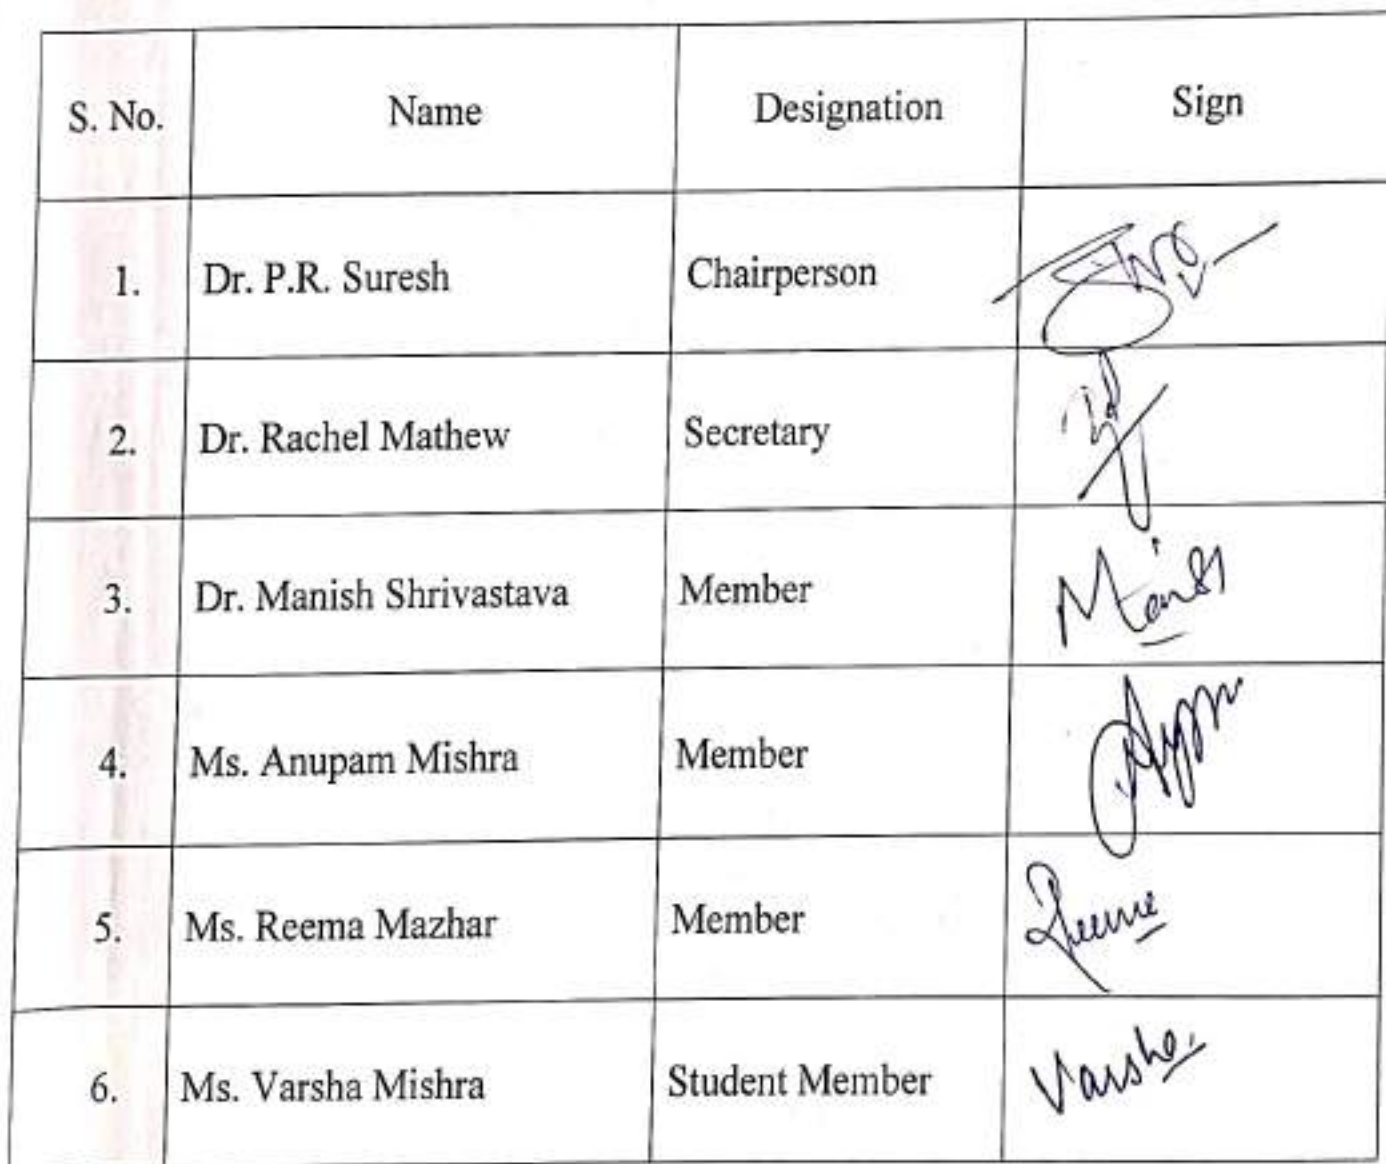 S. No. Name Designation Sign
1. Dr. P.R. Suresh Chairperson
2. Dr. Rachel Mathew Secretary
3. Dr. Manish Shrivastava Member
4. Ms. Anupam Mishra Member
5. Ms. Reema Mazhar Member Reema
6. Ms. Varsha Mishra Student Member Varsha